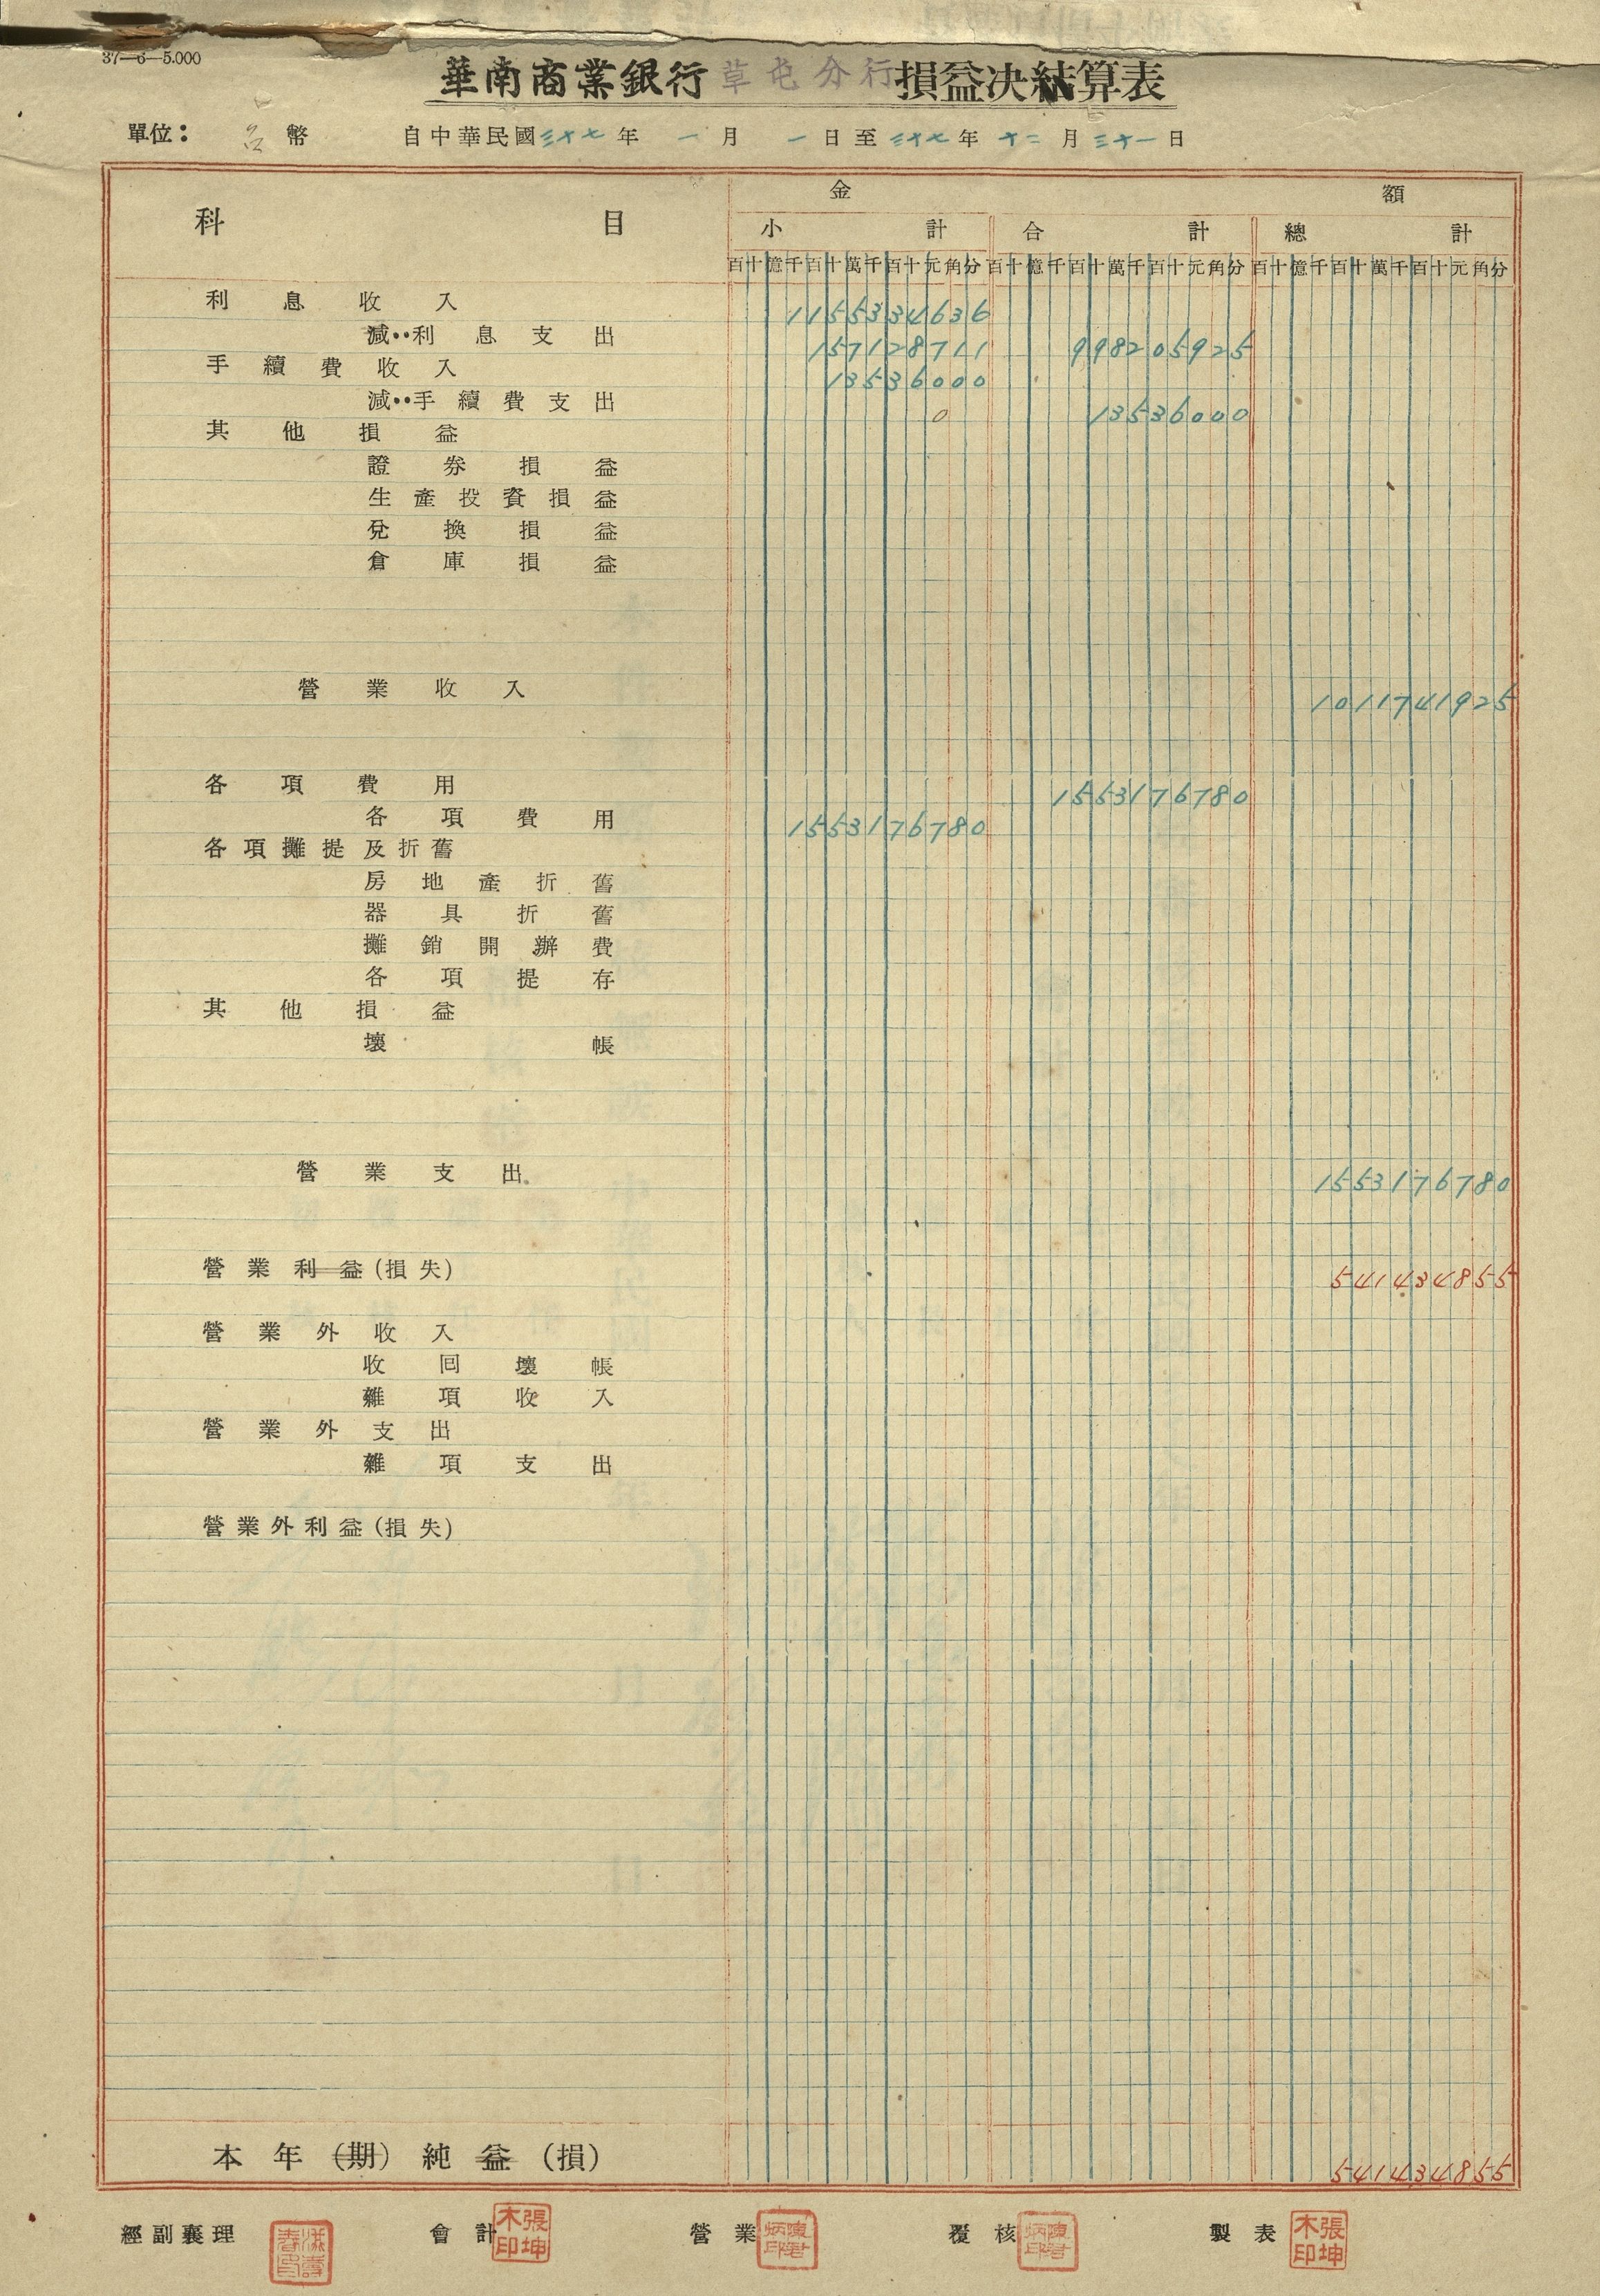 37—6—5.000
華南商業銀行草屯分行損益決結算表
單位：台幣 自中華民國三十七年一月一日至三十七年十二月三十一日
科目 金額
小計 合計 總計
百十億千百十萬千百十元角分 百十億千百十萬千百十元角分 百十億千百十萬千百十元角分
利息收入 1155334636
減：利息支出 157128711 998205925
手續費收入 13536000
減：手續費支出 0 13536000
其他損益
證券損益
生產投資損益
兌換損益
倉庫損益
營業收入 1011741925
各項費用 1553176780
各項費用 1553176780
各項攤提及折舊
房地產折舊
器具折舊
攤銷開辦費
各項提存
其他損益
壞帳
營業支出 1553176780
營業利益(損失) 541434855
營業外收入
收回壞帳
雜項收入
營業外支出
雜項支出
營業外利益(損失)
本年(期)純益(損) 541434855
經副襄理 會計 張坤木印 營業 覆核 製表 張坤木印